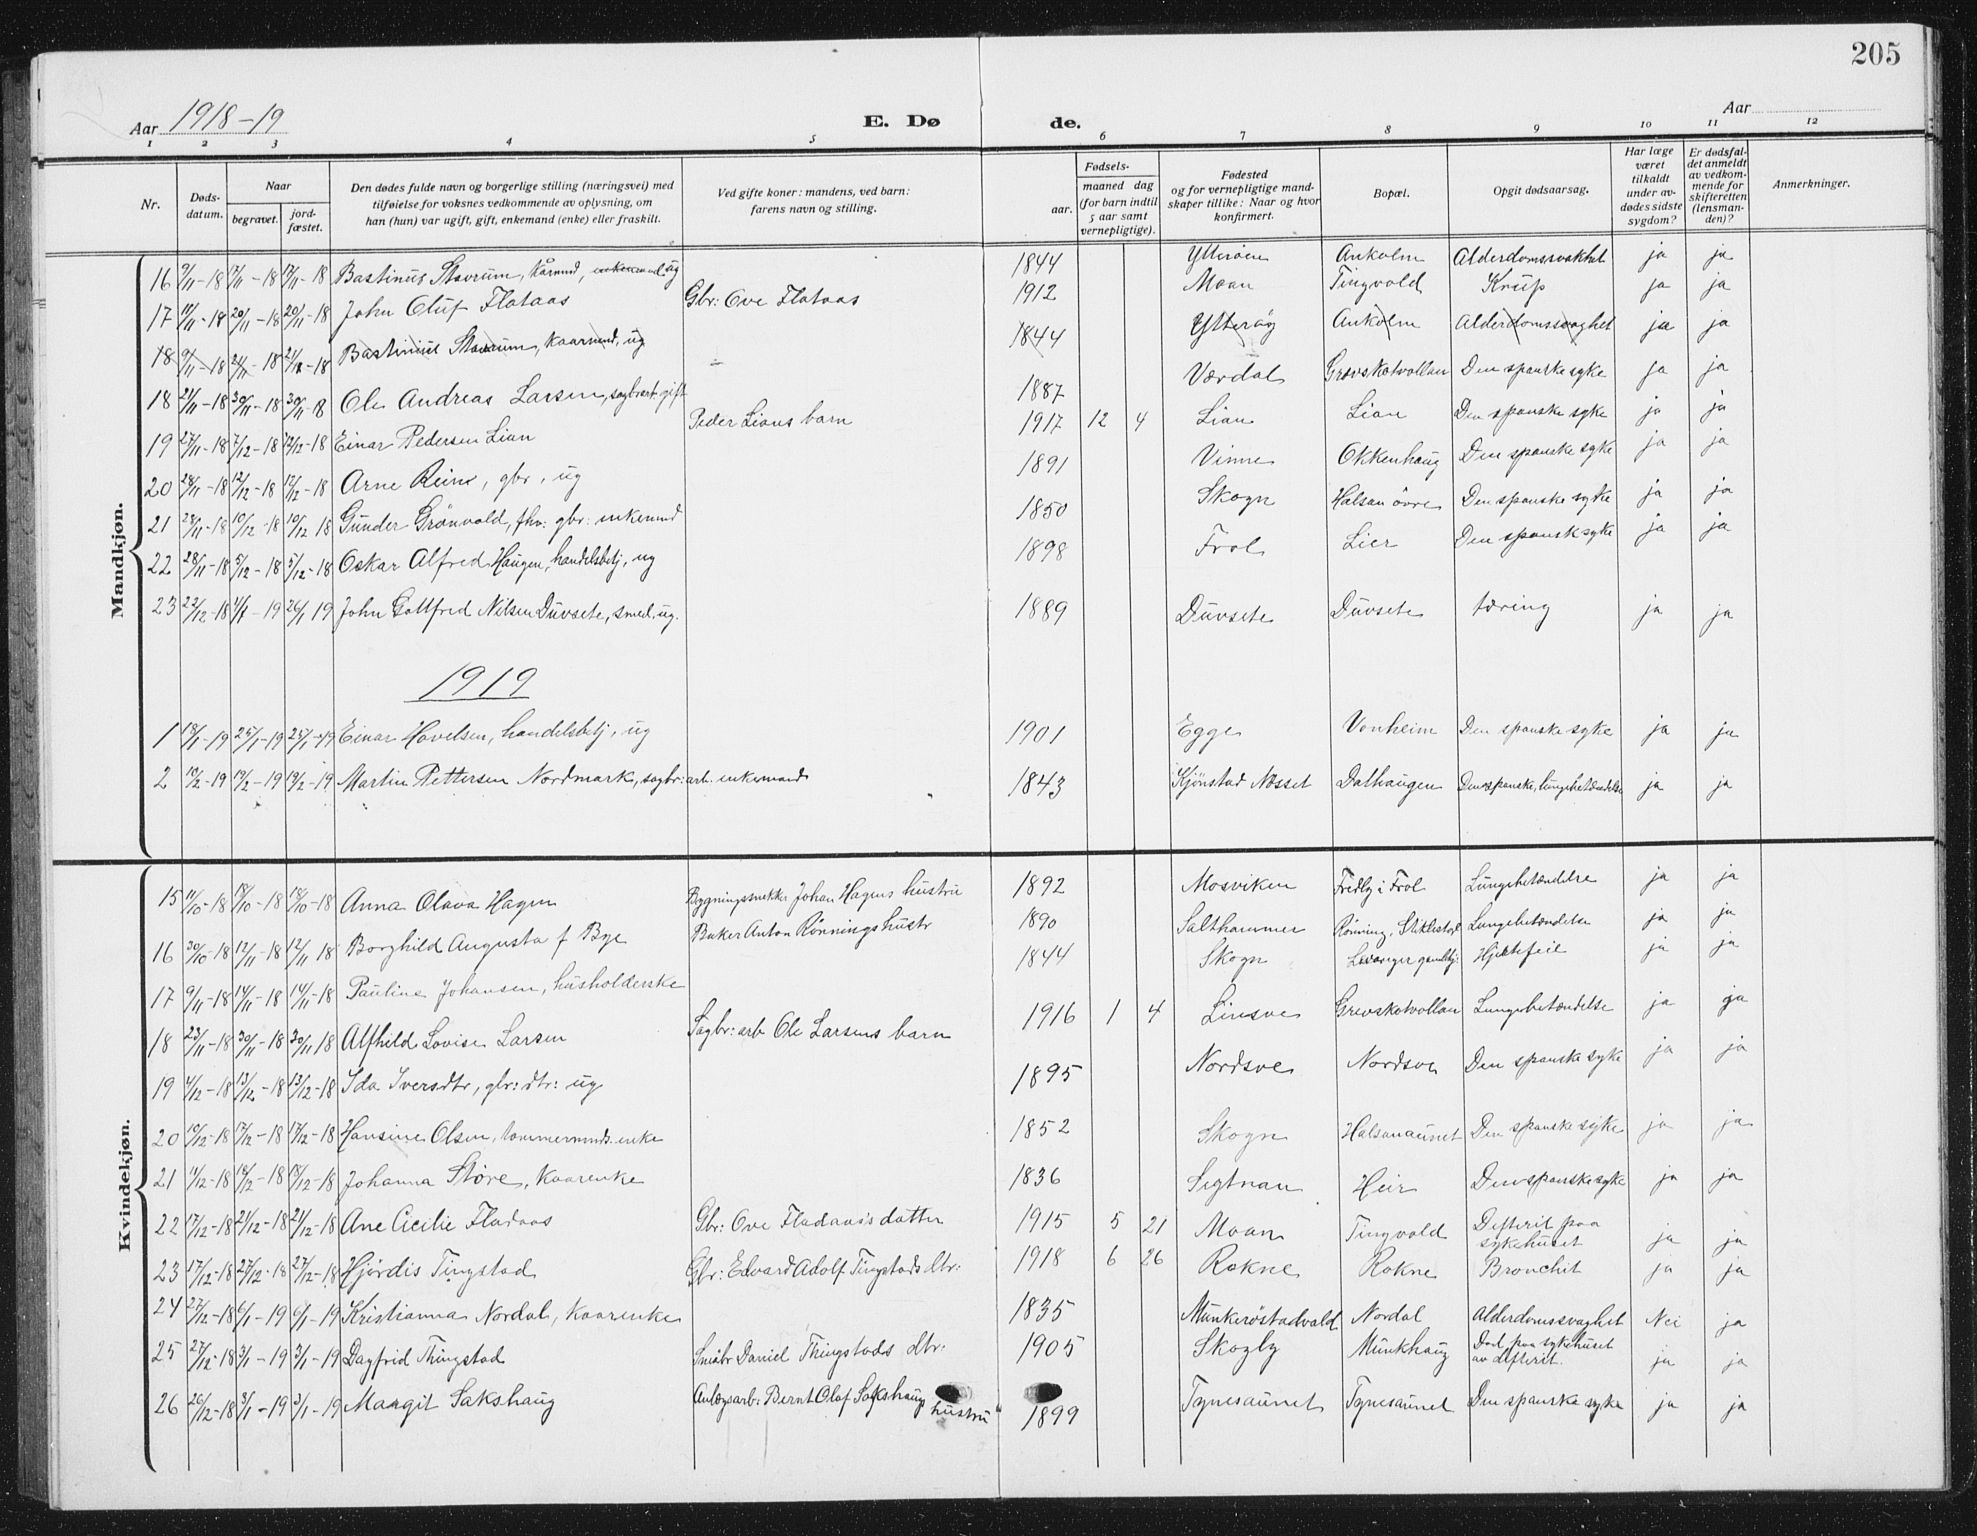 205
Aar 1918-19 E. Døde. Aar
1 2 3 4 5 6 7 8 9 10 11 12
Nr.
Døds-datum.
Naar
begravet.
jord-fæstet.
Den dødes fulde navn og borgerlige stilling (næringsvei) med
tilføielse for voksnes vedkommende av oplysning, om
han (hun) var ugift, gift, enkemand (enke) eller fraskilt.
Ved gifte koner: mandens, ved barn:
farens navn og stilling.
Fødsels-
aar.
maaned dag
(for barn indtil
5 aar samt
vernepligtige).
Fødested
og for vernepligtige mand-
skaper tillike: Naar og hvor
konfirmert.
Bopæl.
Opgit dødsaarsag.
Har læge
været
tilkaldt
under av-
dødes sidste
sygdom?
Er dødsfal-
det anmeldt
av vedkom-
mende for
skifteretten
(lensman-
den)?
Anmerkninger.
Mandkjøn.
16 9/11-18 17/11-18 17/11-18 Bastinus Stavrum, kårmd, enkemand ug 1844 Ytterøen Ankolm Alderdomssvakhet ja ja
17 11/11-18 20/11-18 20/11-18 John Oluf Flataas Gbr: Ove Flataas 1912 Moan Tingvold Krup ja ja
18 9/11-18 24/11-18 21/12-18 Bastinus Stavrum, kaarmd, ug 1844 Ytterøy Ankolm Alderdomssvaghet ja ja
18 21/11-18 30/11-18 30/11-18 Ole Andreas Larsen, sagbr.arb. gift 1887 Værdal Grevskotvollan Den spanske syke ja ja
19 27/11-18 7/12-18 12/12-18 Einar Pedersen Lian Peder Lians barn 1917 12 4 Lian Lian Den spanske syke ja ja
20 28/11-18 12/12-18 12/12-18 Arne Rein, gbr, ug 1891 Vinne Okkenhaug Den spanske syke ja ja
21 28/11-18 10/12-18 10/12 18 Gunder Grönvold, fhv: gbr: enkemd 1850 Skogn Halsan övre Den spanske syke ja ja
22 28/11-18 5/12-18 5/12-18 Oskar Alfred Haugen, handelsbetj, ug 1898 Frol Lier Den spansk syke ja ja
23 22/12-18 4/1-19 26/1 19 John Gottfred Nilsen Duvsete, smed, ug. 1889 Duvsete Duvsete tæring ja ja
1919
1 18/1-19 25/1-19 25/1-19 Einar Hovelsen, handelsbetj, ug 1901 Egge Vonheim Den spanske syke ja ja
2 10/2-19 19/2-19 19/2-19 Martin Pettersen Nordmark, sagbr: arb. enkemand 1843 Kjönstad Nosset Dalhaugen Den spanske, lungebetændelse ja ja
Kvindekjøn.
15 11/10-18 18/10-18 18/10-18 Anna Olava Hagen Bygningssnekker Johan Hagens hustru 1892 Mosviken Fredly i Frol Lungebetændelse ja ja
16 30/10-18 12/11-18 12/11 18 Borghild Augusta f Bye Baker Anton Rönnings hustr 1890 Salthammer Rönning, Stiklestad Lungebetændelse ja ja
17 9/11-18 14/11-18 14/11-18 Pauline Johansen, husholderske 1844 Skogn Levanger gamlehj: Hjertefeil ja ja
18 23/11-18 30/11-18 30/11 18 Alfhild Lovise Larsen Sagbr: arb Ole Larsens barn 1916 1 4 Linsve Grevskotvollan Lungebetændelse ja ja
19 4/12-18 13/12-18 13/12-18 Ida Iversdtr, gbr: dtr: ug 1895 Nordsve Nordsve Den spanske syke ja ja
20 10/12-18 17/12-18 17/12-18 Hansine Olsen, tømmermds. enke 1852 Skogn Halsanaunet Den spanske syke ja ja
21 11/12-18 18/12-18 18/12-18 Johanna Støre, kaarenke 1836 Sigtnan Heir Den spanske syke ja ja
22 17/12-18 21/12-18 21/12-18 Ane Cicilie Fladaas Gbr: Ove Fladaas's datter 1915 5 21 Moan Tingvold Difterit paa sykehuset ja ja
23 17/12-18 27/12-18 27/12-18 Hjördis Tingstad Gbr: Edvard Adolf Tingstads dtr: 1918 6 26 Rokne Rokne Bronchit ja ja
24 27/12-18 6/1-19 6/1-19 Kristianna Nordal, kaarenke 1835 Munkeröstadvald Nordal Alderdomssvaghet Nei ja
25 27/12-18 3/1-19 3/1-19 Dagfrid Thingstad Småbr Daniel Thingstads dtr: 1905 Skogly Munkhaug Död paa sykehuset av difterit. ja ja
26 26/12-18 3/1-19 3/1-19 Margit Sakshaug Anlægsarb: Bernt Olaf Sakshaug hustru 1899 Tynesaunet Tynesaunet Den spanske syke ja ja